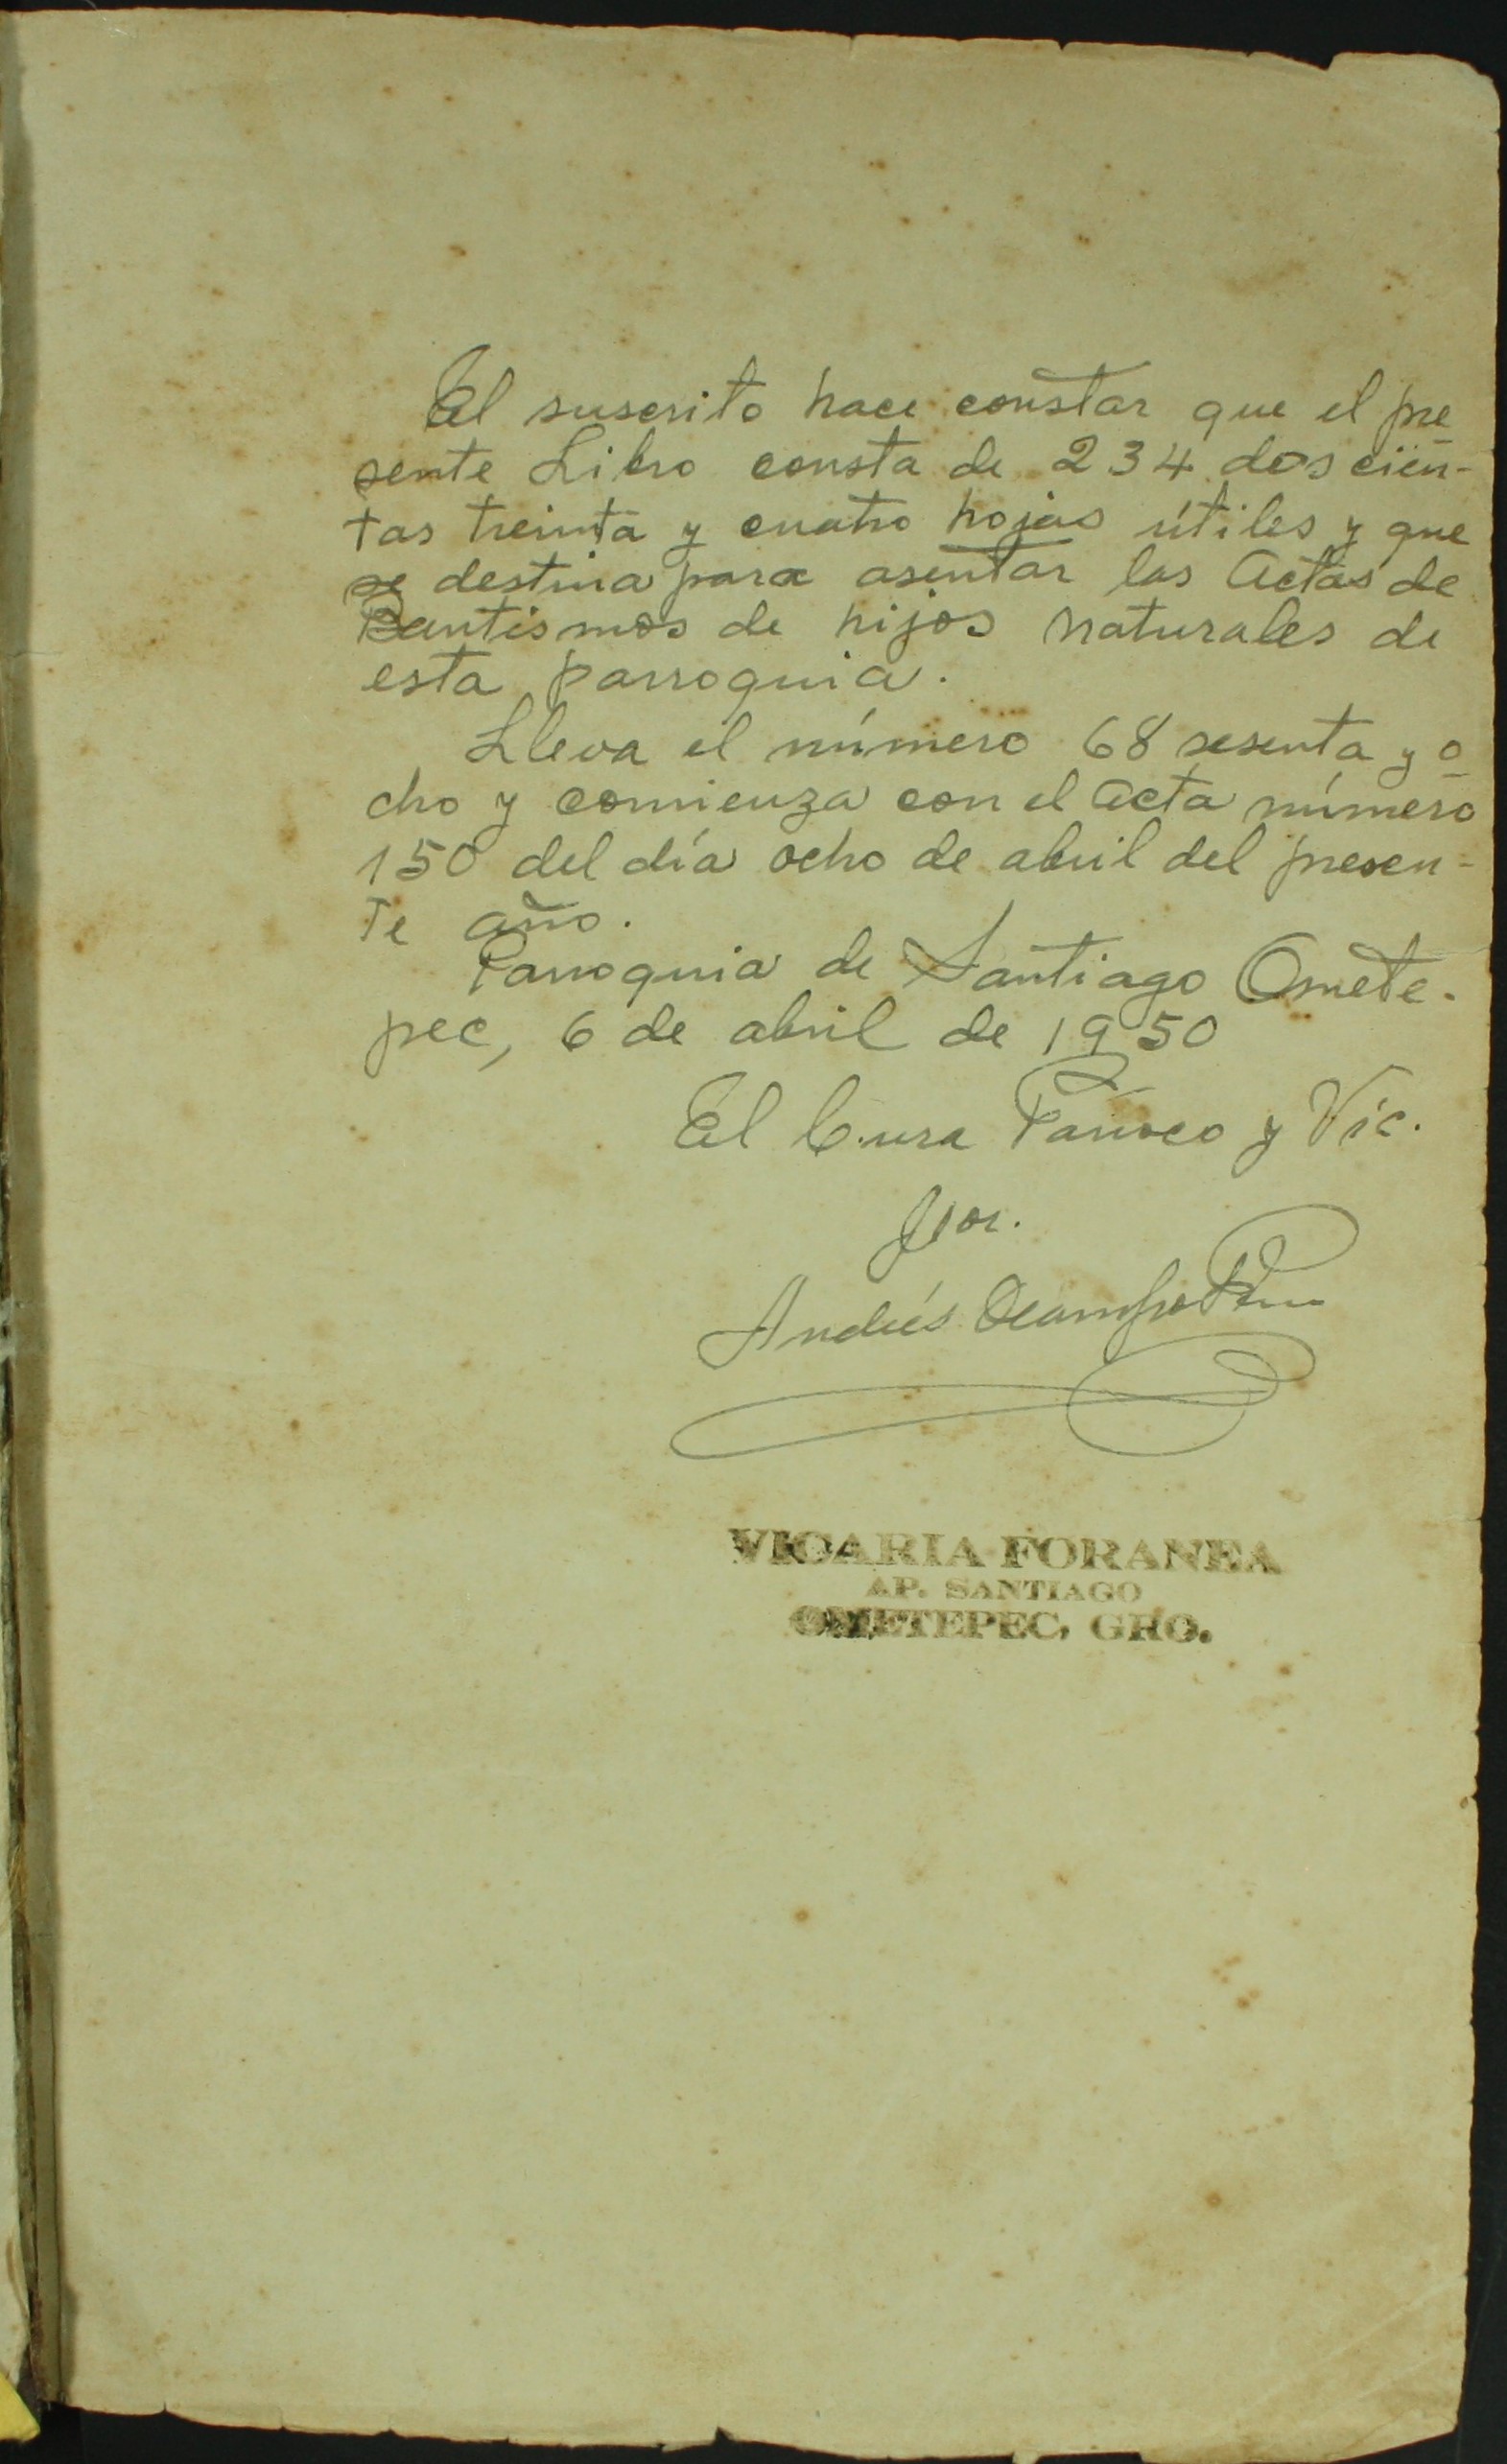 El suscrito hace constar que el pre
sente Libro consta de 234 doscien-
tas treinta y cuatro hojas útiles y que
se destina para asentar las Actas de
Bautismos de hijos naturales de
esta parroquia.
Lleva el número 68 sesenta y o
cho y comienza con el Acta número
150 del día ocho de abril del presen-
te año.
Parroquia de Santiago Omete-
pec, 6 de abril de 1950
El Cura Párroco y Vic.
For.
Andrés Ocampo
VICARIA FORANEA
AP. SANTIAGO
OMETEPEC, GRO.